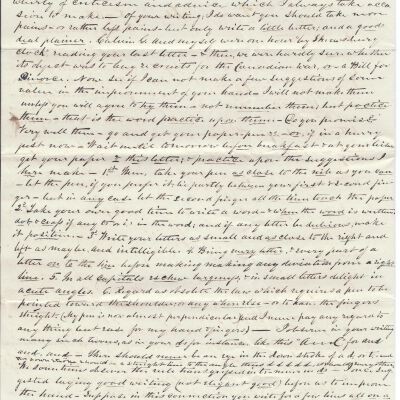 of criticism and advice which I always take occa-
sion to make - of your writing, I do want you should take more
pains - or rather less pains - but only write a little better, and a good
deal plainer. and myself were one hour by Shrewsbury
clock reading your last letter & then we were hardly sure whether
its object was to buy recruits for the Canadian war, or a Bill for
Divorce. Now see if I can not make a few suggestions of some
value in the improvement of your hand - I will not make them
unless you will agree to try them - not remember them; but practice
them - that is the word practice upon them - Do you promise?
Very well then - go and get your paper pen &c - or if in a hurry
just now - Wait until tomorrow before breakfast & at your leisure
get your paper & this letter; & practice upon the suggestions I
here make - 1st Then, take your pen as close to the nib as you can
- let the pen, if you prefer it lie partly between your first & second fin-
ger - but in any case let the second finger all the time touch the paper
2d Take your own good time to write a word - & when the word is written
dot & cross if any for i in the word; and if any letter be dubious, make
it positive. 3 Write your letters as small and as close to the right and
left as may be, and intelligible. 4 Bring every other (if every) leg of a
letter on to the line before making any deviation from a right
line. 5. In all capitals eschew largeness & in small letters delight in
acute angles. 6 Regard as obsolete the law which requires a pen to be
pointed toward the shoulder or any where else - or to have the fingers
straight (My pen is now almost perpendicular and I never pay any regard to
any thing but ease for my hand & fingers) - I observe in your writing
many such twos, as in your do for instance, like this and for and
and. and - There should never be an eye in the down stroke of a d or t, and
We sometimes deliver the rule
Sug-
gested buying good writing (not elegant good) before us to improve
the hand. Suppose in this connection you write for a few lines all on a